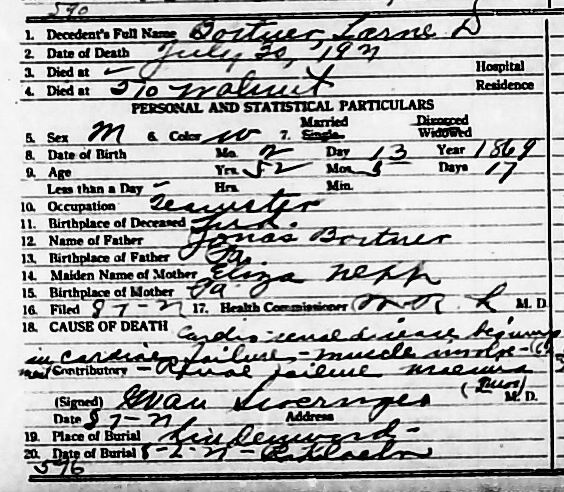 590
1. Decedent's Full Name Bortner, Lorne D
2. Date of Death July 30, 1921
3. Died at — Hospital
4. Died at 510 Walnut Residence
PERSONAL AND STATISTICAL PARTICULARS
5. Sex M 6. Color W 7. Married Single Divorced Widowed
8. Date of Birth Mo. 2 Day 13 Year 1869
9. Age Yrs. 52 Mos. 5 Days 17
Less than a Day — Hrs. Min.
10. Occupation Teamster
11. Birthplace of Deceased Ind.
12. Name of Father Jonas Bortner
13. Birthplace of Father Pa
14. Maiden Name of Mother Eliza Nepp
15. Birthplace of Mother Pa
16. Filed 8-1-21 17. Health Commissioner M. D.
18. CAUSE OF DEATH Cardio-renal disease
in cardiac failure - muscle
Contributory - Renal failure
(Signed) M. D.
Date 8-1-21 Address
19. Place of Burial Lindenwood -
20. Date of Burial 8-2-21 -
596